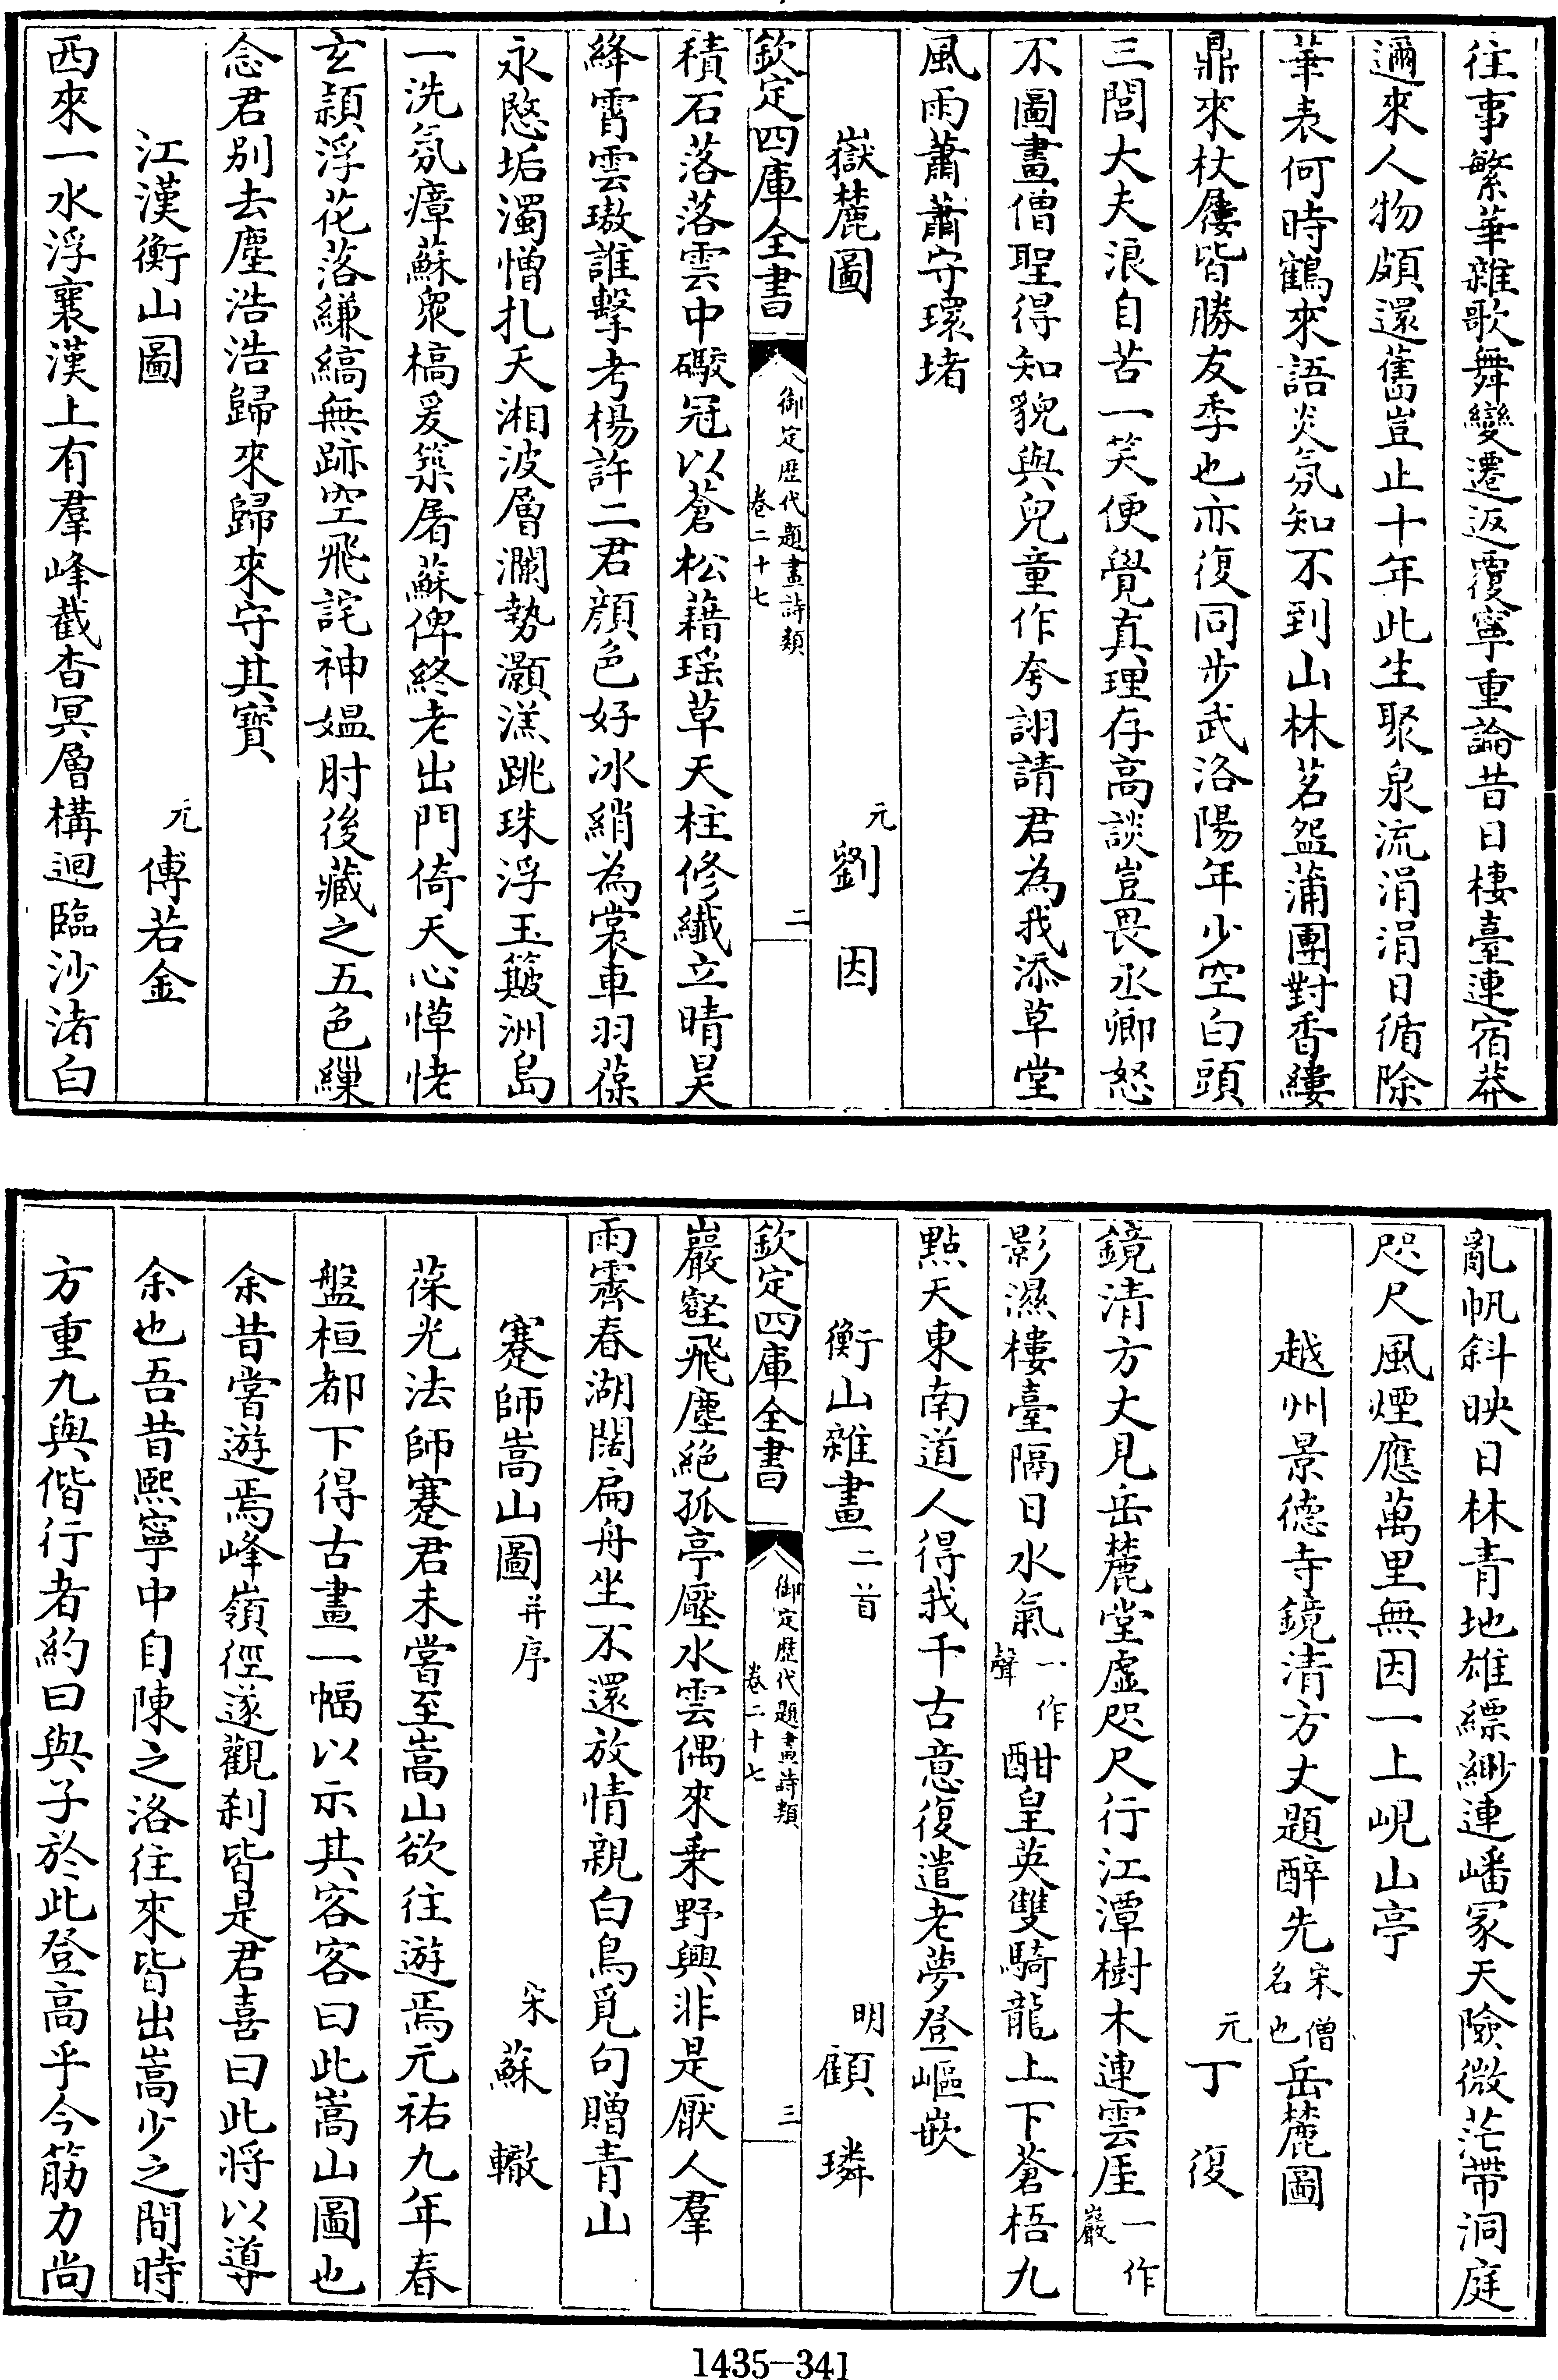 往事繁華雜歌舞變遷返覆寧重論昔日棲臺連宿莽
邇來人物頗還舊豈止十年此生聚泉流涓涓日循除
華表何時鶴來語炎氛知不到山林茗盌蒲團對香縷
鼎來杖屨皆勝友季也亦復同步武洛陽年少空白頭
三閭大夫浪自苦一笑便覺真理存高談豈畏丞卿怒
不圖畫僧聖得知貌與兒童作夸詡請君為我添草堂
風雨蕭蕭守環堵
嶽麓圖
元劉因
欽定四庫全書
御定歷代題畫詩類
卷二十七
二
積石落落雲中礮冠以蒼松藉瑶草天柱修纖立晴昊
絳霄雲璈誰擊考楊許二君顔色好冰綃為裳車羽葆
永愍垢濁憎扎夭湘波層瀾勢灝溔跳珠浮玉簸洲島
一洗氛瘴蘇衆槁爰築屠蘇俾終老出門倚天心愺恅
玄潁浮花落縑縞無跡空飛詫神媪肘後藏之五色繅
念君别去塵浩浩歸來歸來守其寶
江漢衡山圖
元傅若金
西來一水浮襄漢上有羣峰截杳冥層構迴臨沙渚白
亂帆斜映日林青地雄縹緲連嶓冢天險微茫帶洞庭
咫尺風煙應萬里無因一上峴山亭
越州景德寺鏡清方丈題醉先宋僧名也岳麓圖
元丁復
鏡清方丈見岳麓堂虚咫尺行江潭樹木連雲厓一作巖
影濕樓臺隔日水氣一作聲酣皇英雙騎龍上下蒼梧九
點天東南道人得我千古意復遣老夢登嶇嶔
衡山雜畫二首
明顧璘
欽定四庫全書
御定歷代題畫詩類
卷二十七
三
巖壑飛塵絕孤亭壓水雲偶來乗野興非是厭人羣
雨霽春湖闊扁舟坐不還放情親白鳥覓句贈青山
蹇師嵩山圖并序
宋蘇轍
葆光法師蹇君未嘗至嵩山欲往遊焉元祐九年春
盤桓都下得古畫一幅以示其客客曰此嵩山圖也
余昔嘗遊焉峰嶺徑遂觀刹皆是君喜曰此將以導
余也吾昔熙寧中自陳之洛往來皆出嵩少之間時
方重九與偕行者約曰與子於此登高乎今筋力尚
1435-341